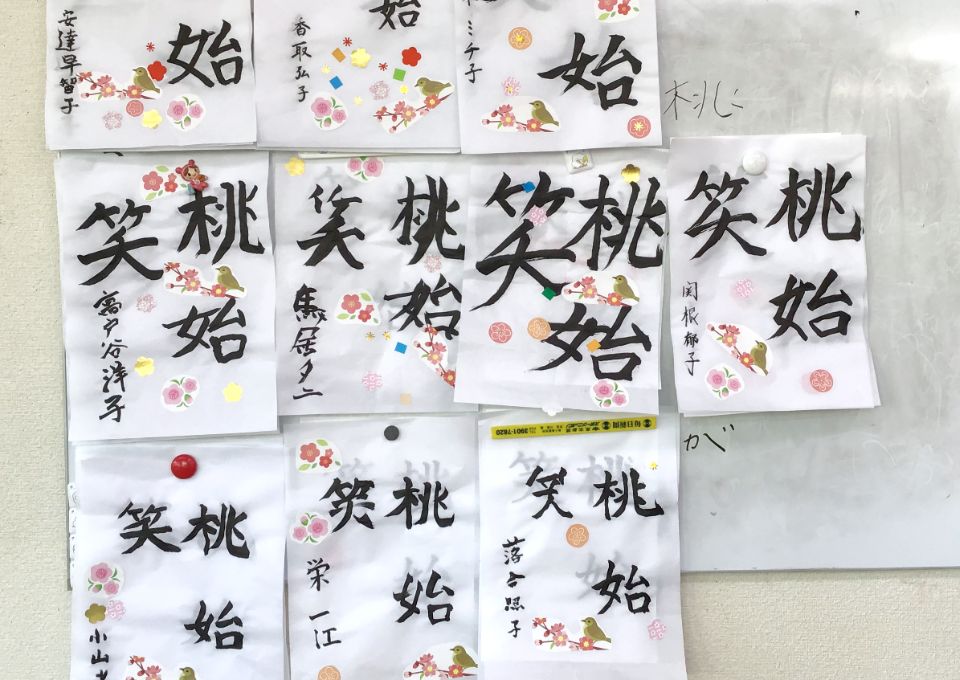 始
安達早智子
始
香取弘子
始
ミチ子
桃
桃始
笑
戸谷洋子
桃始
笑
馬居夕二
桃始
笑
桃始
笑
関根郁子
が
桃始
笑
小山
桃始
笑
栄一江
毎日新聞
3901-7820
桃始
笑
落合照子